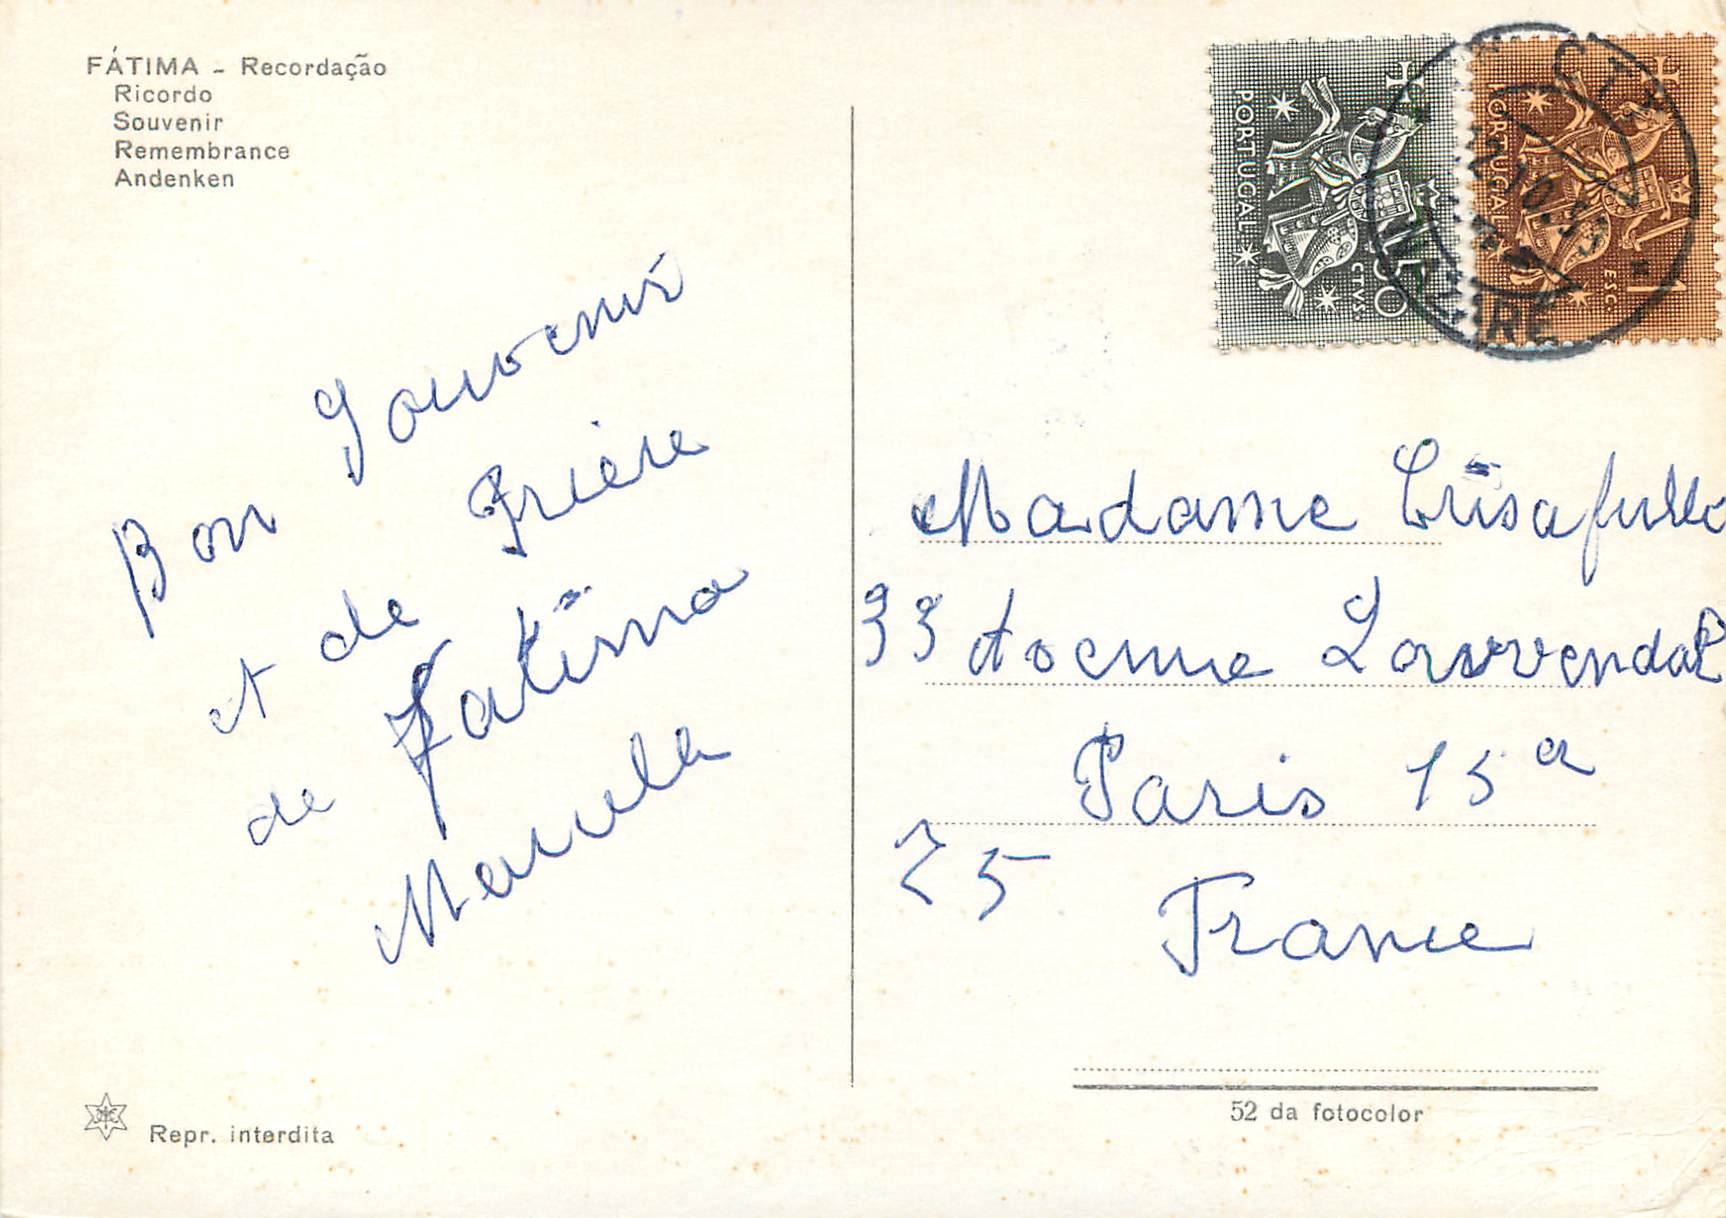 FÁTIMA - Recordação
Ricordo
Souvenir
Remembrance
Andenken
Bon Souvenir
et de Prière
de Fatima
Repr. interdita
PORTUGAL
CTVS 50
PORTUGAL
ESC. 1
CTT
NAZARÉ
Madame Crisafulli
33 Avenue Lowendal
Paris 15
75
France
52 da fotocolor